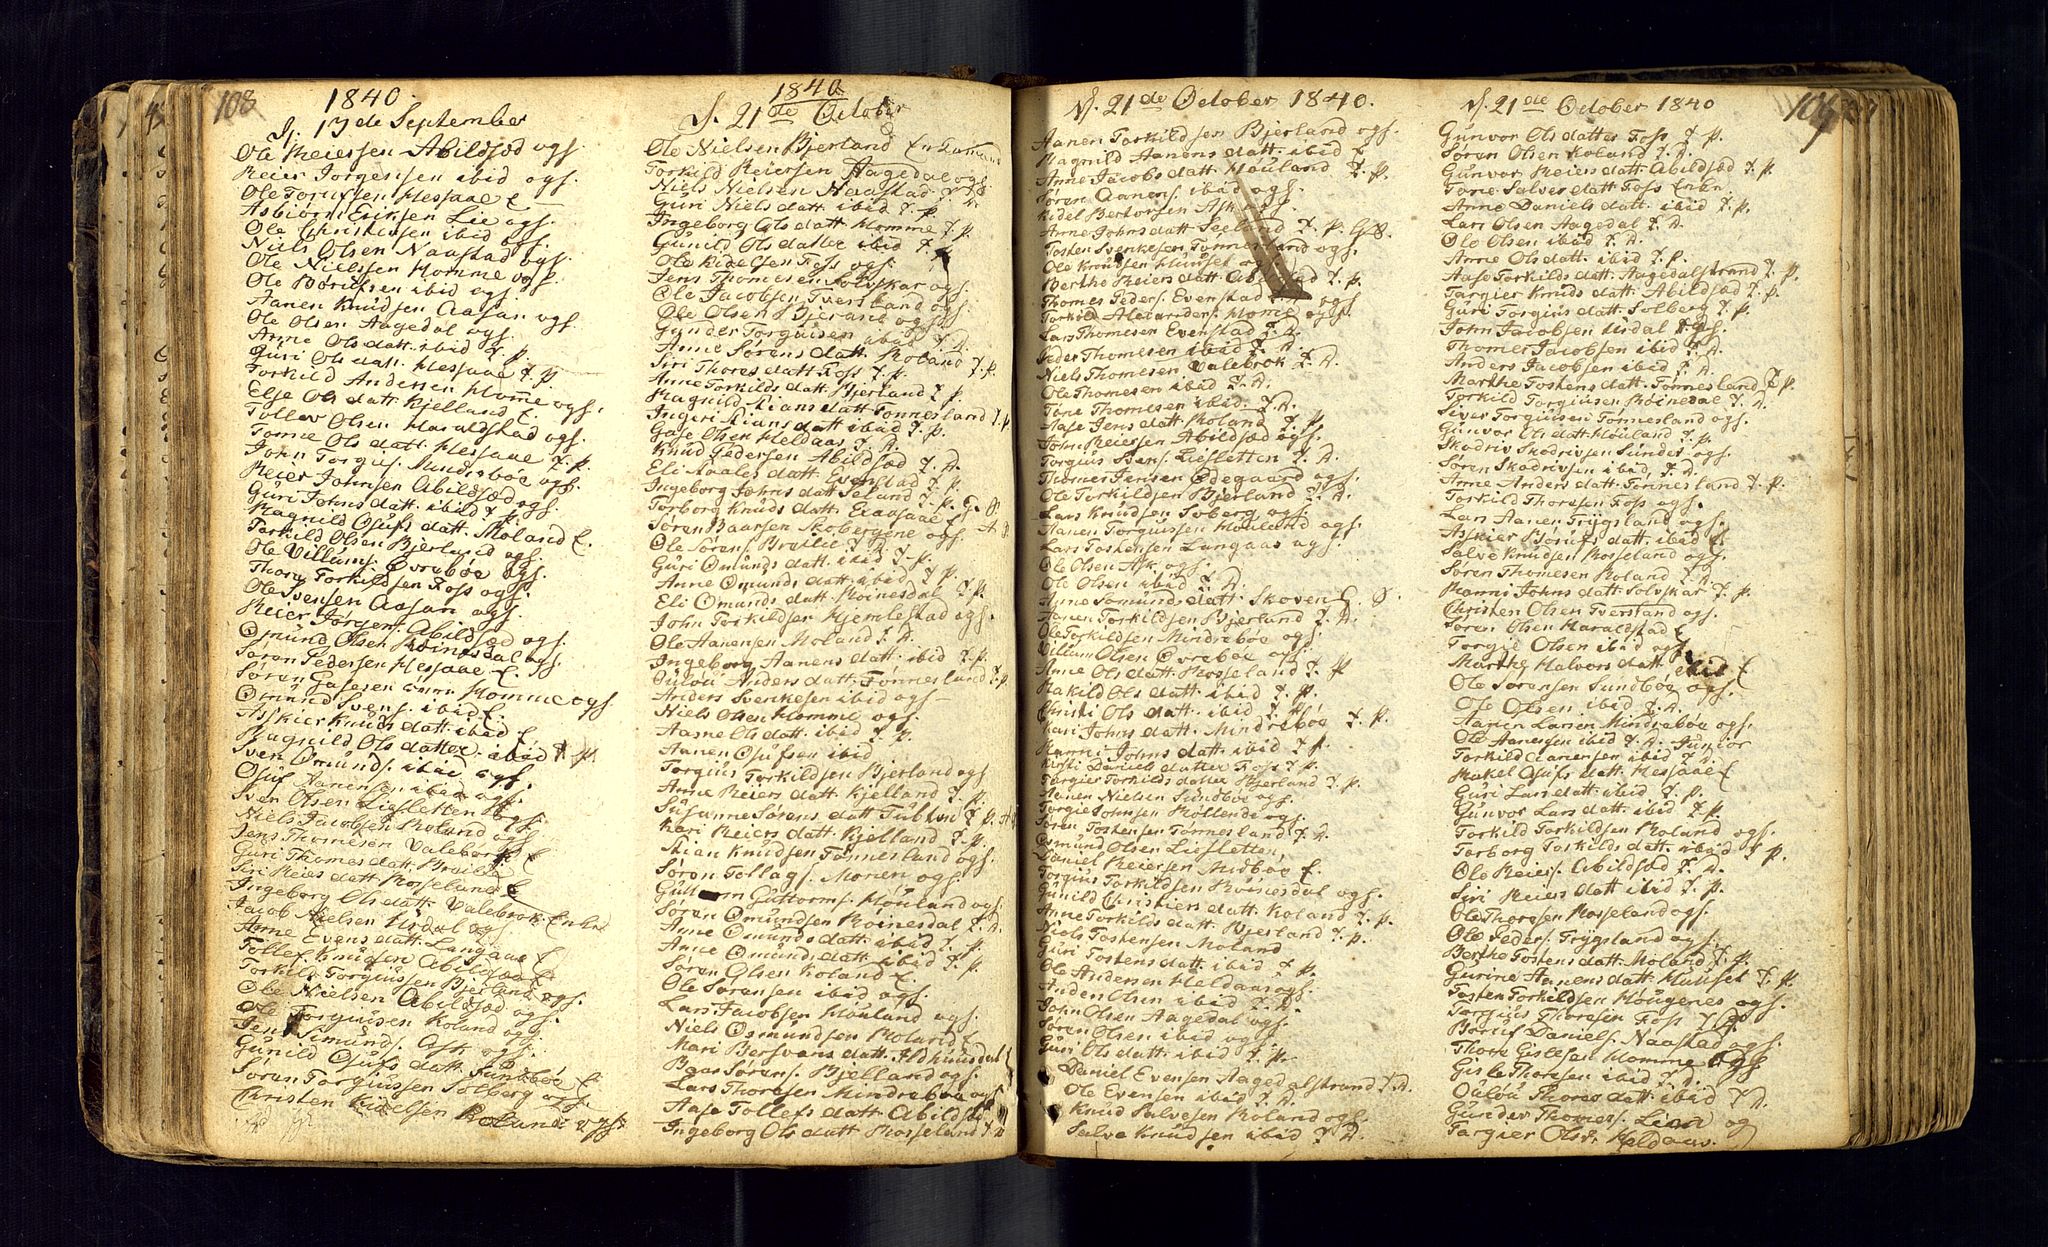 108
1840
D. 17de September
Ole Reiersen Abildsæd ogs.
Reier Jørgensen ibid ogs.
Ole Torufsen Messaae E
Asbiørn Eriksen Lie ogs.
Ole Christensen ibid ogs.
Niels Olsen Naastad ogs.
Ole Nielssen Homme ogs.
Ole Børufsen ibid ogs.
Aanen Knudsen Aasan ogs.
Ole Olsen Aagedal ogs.
Anne Ols datt. ibid J. P.
Guri Ols datt. Messaae J. P.
Torkild Andersen Homme ogs.
Else Ols datt Kjelland E.
Tollev Olsen Haraldstad ogs.
Tonne Ols datt. Messaae J. P.
John Torgius. Mindrebøe ogs.
Reier Johnsen Abildsæd ogs.
Guri Johns datt. ibid J. P.
Magnild Osufs datt. Moland E.
Torkild Olsen Bjerland ogs.
Ole Villums. Øvrebøe ogs.
Thore Torkildsen Foss ogs.
Ole Svensen Aasan ogs.
Reier Jørgens. Abildsæd ogs.
Omund Olsen Røinesdal ogs.
Søren Pedersen Messaae E.
Søren Gasesen Homme ogs.
Omund Svens. ibid E.
Asskier Knuds datt. ibid E
Magnild Ols datter ibid
Sven Omunds. ibid ogs.
Osuf Aanensen ibid ogs.
Sven Olsen Liesletten ogs.
Niels Jacobsen Roland ogs
Jens Thomesen Valebrok E
Guri Thomes datt. Breilie E
Siri Reiers datt Rosseland E
Ingeborg Ols datt. Valebrok Enke
Jacob Nielsen Urdal ogs
Anne Evens datt. Langaae E
Tollef Knudsen Abildsæd E
Torkild Torgiussen Bjerland ogs.
Ole Nielsen Abildsæd ogs.
Ole Torgiussen Roland ogs
Jens Simunds. Ask ogs.
Gunild Osufs datt. Sundbøe E.
Søren Torgiussen Solberg ogs.
Christen Kidelsen Roland ogs.
1840
D. 21de October
Ole Nielsen Bjerland Enkemand
Torkild Reiersen Aagedal ogs
Niels Nielsen Naastad J. D.
Guri Niels datt ibid J. P.
Ingeborg Ols datt Homme J. P
Gunild Ols datter ibid J. P.
Ole Kidelsen Foss ogs.
Jens Thomesen Solvskar ogs.
Ole Jacobsen Tverstand ogs.
Ole Olsen Bjerland ogs.
Gunder Torguisen ibid J. D.
Anne Sørens datt. Roland J. P.
Siri Thores datt Foss J. P.
Anne Torkilds datt. Bjerland J. P.
Magnild Stians datt Tonnesland J. P
Ingeri Stians datt ibid J. P.
Gase Olsen Meldaas J. D.
Knud Pedersen Abildsæd J. D.
Eli Aales datt Evenstad J. P.
Ingeborg Johns datt Seland J. P. G. S.
Torborg Knuds datt. Eraasaae E
Søren Baarsen Skobergene ogs.
Ole Sørens. Breilie J. D.
Guri Omunds datt. ibid J. P.
Anne Omunds datt ibid J. P.
Eli Omunds datt Røinesdal J. P.
John Torkildsen Hjemlestad ogs.
Ole Aanensen Moland J. D.
Ingeborg Aanens datt. ibid J. P.
Oulou Anders datt. Tonnesland J. P
Anders Svenkesen ibid ogs
Niels Olsen Homme ogs.
Aasne Ols datt. ibid J. P.
Aanen Osufsen ibid
Torgius Torkildsen Bjerland ogs
Anne Reiers datt Kjelland J. P.
Susanne Sørens datt Tubben J. P.
Kari Reiers datt. Kjelland J. P.
Stian Knudsen Tonnesland ogs.
Søren Tollags. Monen ogs.
Guttorm Guttorms. Houland ogs
Søren Omundsen Røinesdal J. D.
Anne Omunds datt. ibid J. P.
Anne Omunds datt. ibid J. P.
Søren Olsen Roland E.
Ole Sørensen ibid ogs.
Lars Jacobsen Houland ogs
Niels Osmundsen Roland E
Mari Bersvans datt. Ildknusdal E
Baar Sørens. Bjelland ogs.
Lars Thoresen Mindrebøe ogs
Aase Tollefs datt Abildsæd
Ingeborg Ols datt Rosseland J. P
D. 21de October 1840.
Aanen Torkildsen Bjerland ogs.
Magnild Aanens datt. ibid E
Anne Jacobs datt. Houland J. P.
Søren Aanens. ibid ogs.
Kidel Berthorsen Ask
Anne Johns datt Seeland J. P. G. S.
Tosten Svenkesen Tonnesland ogs.
Ole Knudsen Hunset
Berthe Reiers datt Abildsæd J. P.
Thomes Peders. Evenstad J. D.
Torkild Alexanders. Homme ogs
Lars Thomesen Evenstad J. D.
Peder Thomesen ibid J. D.
Niels Thomesen Valebrok J. D.
Ole Thomesen ibid J. D.
Tone Thomesen ibid. J. D.
Aase Jens datt Roland J. P.
John Reiersen Abildsæd ogs.
Torgius Svens. Liesletten J. D.
Thomes Jensen Ødegaard ogs.
Ole Torkildsen Bjerland J. D.
Lars Knudsen Soberg ogs.
Aanen Torgiussen Houland ogs.
Lars Tostensen Langaas ogs.
Ole Olsen Ask ogs.
Ole Olsen ibid J. D.
Anne Somunds datt. Skoven E. S.
Aanen Torkildsen Bjerland J. D.
Ole Torkildsen Mindrebøe ogs.
Villum Olsen Øvrebøe ogs.
Anne Ols datt Rosseland J. P
Rakild Ols datt ibid J. P.
Christi Ols datt. ibid J. P.
Kari Johns datt. Mindrebøe J. P.
Ranni Johns datt ibid J. P.
Kirsti Daniels datter Foss J. P.
Targier Torkilds datter Bjerland J. P.
Aanen Nielsen Sundbøe ogs.
Torgie Johnsen Røllende ogs.
Søren Tostensen Tonnesland J. D.
Osmund Olsen Liesletten
Daniel Reiersen Midbøe E.
Torgius Torkildsen Røinesdal ogs.
Gunild Christens datt. Roland J. P.
Anne Torkilds datt. Bjerland J. P.
Niels Tostensen Moland
Guri Tostens datt. ibid J. P.
Ole Andersen Meldaas ogs.
Anden Olsen ibid J. D.
John Olsen Aagedal ogs.
Søren Olsen ibid J. D.
Guri Ols datt. ibid J. P.
Daniel Evensen Aagedalstrand J. D.
Ole Evensen ibid J. D.
Knud Salvesen Roland ogs.
Salve Knudsen ibid J. D.
D. 21de October 1840
109
Gunvor Ols datter Foss J. P.
Søren Olsen Roland J. D.
Gunvor Reiers datt. Abildsæd J. P.
Tone Salves datt Foss Enke.
Anne Daniels datt. ibid J. P.
Lars Olsen Aagedal J. D.
Ole Olsen ibid J. D.
Anne Ols datt. ibid J. P.
Aase Torkilds datt. Aagedalstrand J. P.
Targier Knuds datt. Abildsæd J. P.
Guri Torgius datt Solberg J. P.
John Jacobsen Urdal ogs.
Thomes Jacobsen ibid J. D.
Anders Jacobsen ibid J. D.
Marthe Tostens datt. Tonnesland J. P
Torkild Torgiussen Røinesdal J. D.
Siver Torgiussen Tonnesland ogs.
Gunvor Ols datt Houland J. P.
Skadriv Skadrivsen Sunder ogs.
Søren Skadrivsen ibid J. D.
Anne Anders datt. Tonnesland J. P.
Torkild Thoresen Foss ogs.
Lars Aanen. Trygsland ogs.
Asskier Børufs datt. ibid E
Salve Knudsen Rosseland ogs.
Søren Thomesen Roland J. D.
Ranni Johns datt Solvskar J. P.
Christen Olsen Tverstand ogs.
Søren Olsen Haraldstad E
Torgie Olsen ibid ogs.
Marthe Halvors datt. ibid E
Ole Sørensen Sundbøe ogs.
Ole Olsen ibid J. D.
Aanen Larsen Mindrebøe ogs.
Ole Aanensen ibid J. D. Junior
Torkild Aanensen ibid J. D.
Rakel Osufs datt. Messaae E
Guri Lars datt. ibid J. P.
Gunvor Lars datt. ibid J. P.
Torkild Torkildsen Roland ogs.
Torborg Torkilds datt. ibid J. P.
Ole Reiers. Abildsæd J. D.
Siri Reiers datt ibid J. P.
Ole Thoresen Rosseland ogs.
Ole Peders. Trygsland ogs.
Berthe Tostens datt. Moland J. P.
Gurine Aanens datt. Hunset J. P.
Tosten Torkildsen Hougenes ogs.
Torguus Thoresen Foss J. D.
Børuf Daniels. Naastad ogs.
Thore Gislesen Homme ogs
Gisle Thoresen ibid J. D.
Oulou Thores datt. ibid J. P.
Gunder Thomes. Lien og
Targier Olsd. Meldaas.